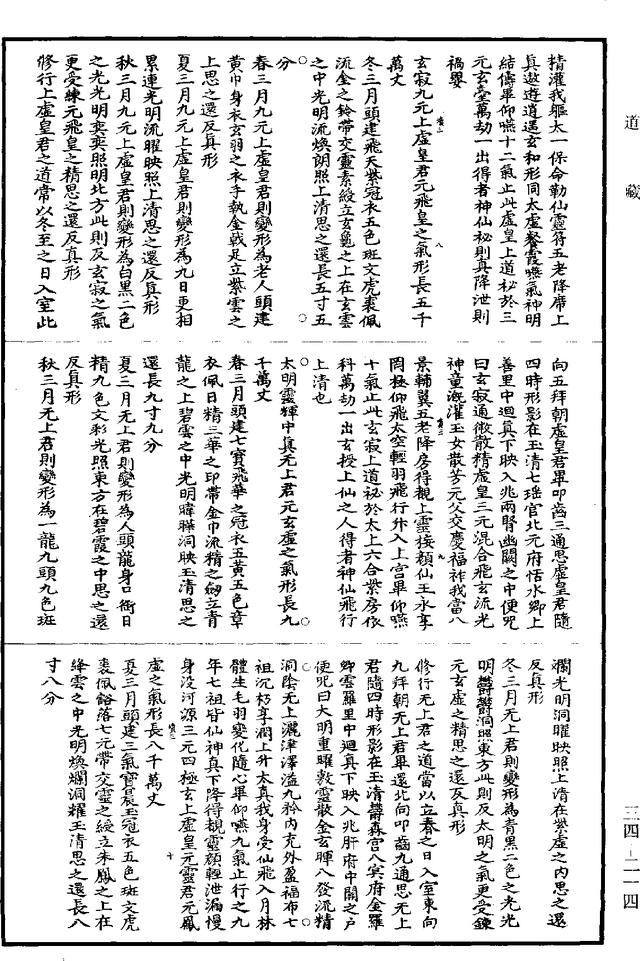 道藏
精灌我軀太一保命勒仙靈符五老降席上
真遨遊逍遥玄和形同太虛餐霞嚥氣神明
結儔畢仰嚥十二氣止此虛皇上道祕於三
元玄臺萬劫一出得者神仙祕則真降泄則
禍嬰
玄寂九元上虛皇君元飛皇之氣形長五千
萬丈
冬三月頭建飛天紫冠衣五色斑文虎裘佩
流金之鈴帶交靈素綬立玄龜之上在玄雲
之中光明流煥朗照上清思之還長五寸五
分
春三月九元上虛皇君則變形為老人頭建
黄巾身衣玄羽之衣手執金戟足立紫雲之
上思之還反真形
夏三月九元上虛皇君則變形為九日更相
累連光明流曜映照上清思之還反真形
秋三月九元上虛皇君則變形為白黑二色
之光光明奕奕照明北方此則反玄寂之氣
更受練元飛皇之精思之還反真形
修行上虛皇君之道常以冬至之日入室北
向五拜朝虛皇君畢叩齒三通思虛皇君隨
四時形影在玉清七瑶宫北元府恬水鄉上
善里中迴真下映入兆兩腎幽闕之中便呪
曰玄寂通微散精虛皇三元混合飛玄流光
神童溉灌玉女散芳元父交慶福祚我當八
景輔翼五老降房得觀上靈接顏仙王永享
罔極仰飛太空輕羽飛行升入上宫畢仰嚥
十氣止此玄寂上道祕於太上六合紫房依
科萬劫一出玄授上仙之人得者神仙飛行
上清也
太明靈輝中真无上君元玄虛之氣形長九
千萬丈
春三月頭建七寶飛華之冠衣五黄五色章
衣佩日精三華之印帶金巾流精之劒立青
龍之上碧雲之中光明暐曄洞映玉清思之
還長九寸九分
夏三月无上君則變形為人頭龍身口銜日
精九色文彩光照東方在碧霞之中思之還
反真形
秋三月无上君則變形為一龍九頭九色斑
斕光明洞曜映照上清在紫虛之内思之還
反真形
冬三月无上君則變形為青黑二色之光光
明鬱鬱洞照東方此則反太明之氣更受鍊
元玄虛之精思之還反真形
修行无上君之道當以立春之日入室東向
九拜朝无上君畢還北向叩齒九通思无上
君隨四時形影在玉清鬱森宫八冥府金羅
鄉雲羅里中迴真下映入兆肝府中闕之户
便呪曰大明重曜敷靈散金玄暉八發流精
洞陰无上灑津澤溢九衿内充外盈福布七
祖沉朽享潤上升太真我身受仙飛入月林
體生毛羽變化隨心畢仰嚥九氣止行之九
年七祖皆仙神真下降得覩靈顏輕泄漏慢
身没河源三元四極玄上虛皇元靈君元鳳
虛之氣形長八千萬丈
夏三月頭建三氣寶晨玉冠衣五色斑文虎
裘佩豁落七元帶交靈之綬立朱鳳之上在
絳雲之中光明煥爛洞耀玉清思之還長八
寸八分
三四—二一四